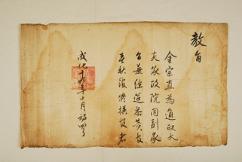 教旨
金宗直為通政大
夫承政院同副承
旨兼經筵參贊官
春秋館修撰官者
成化十九年